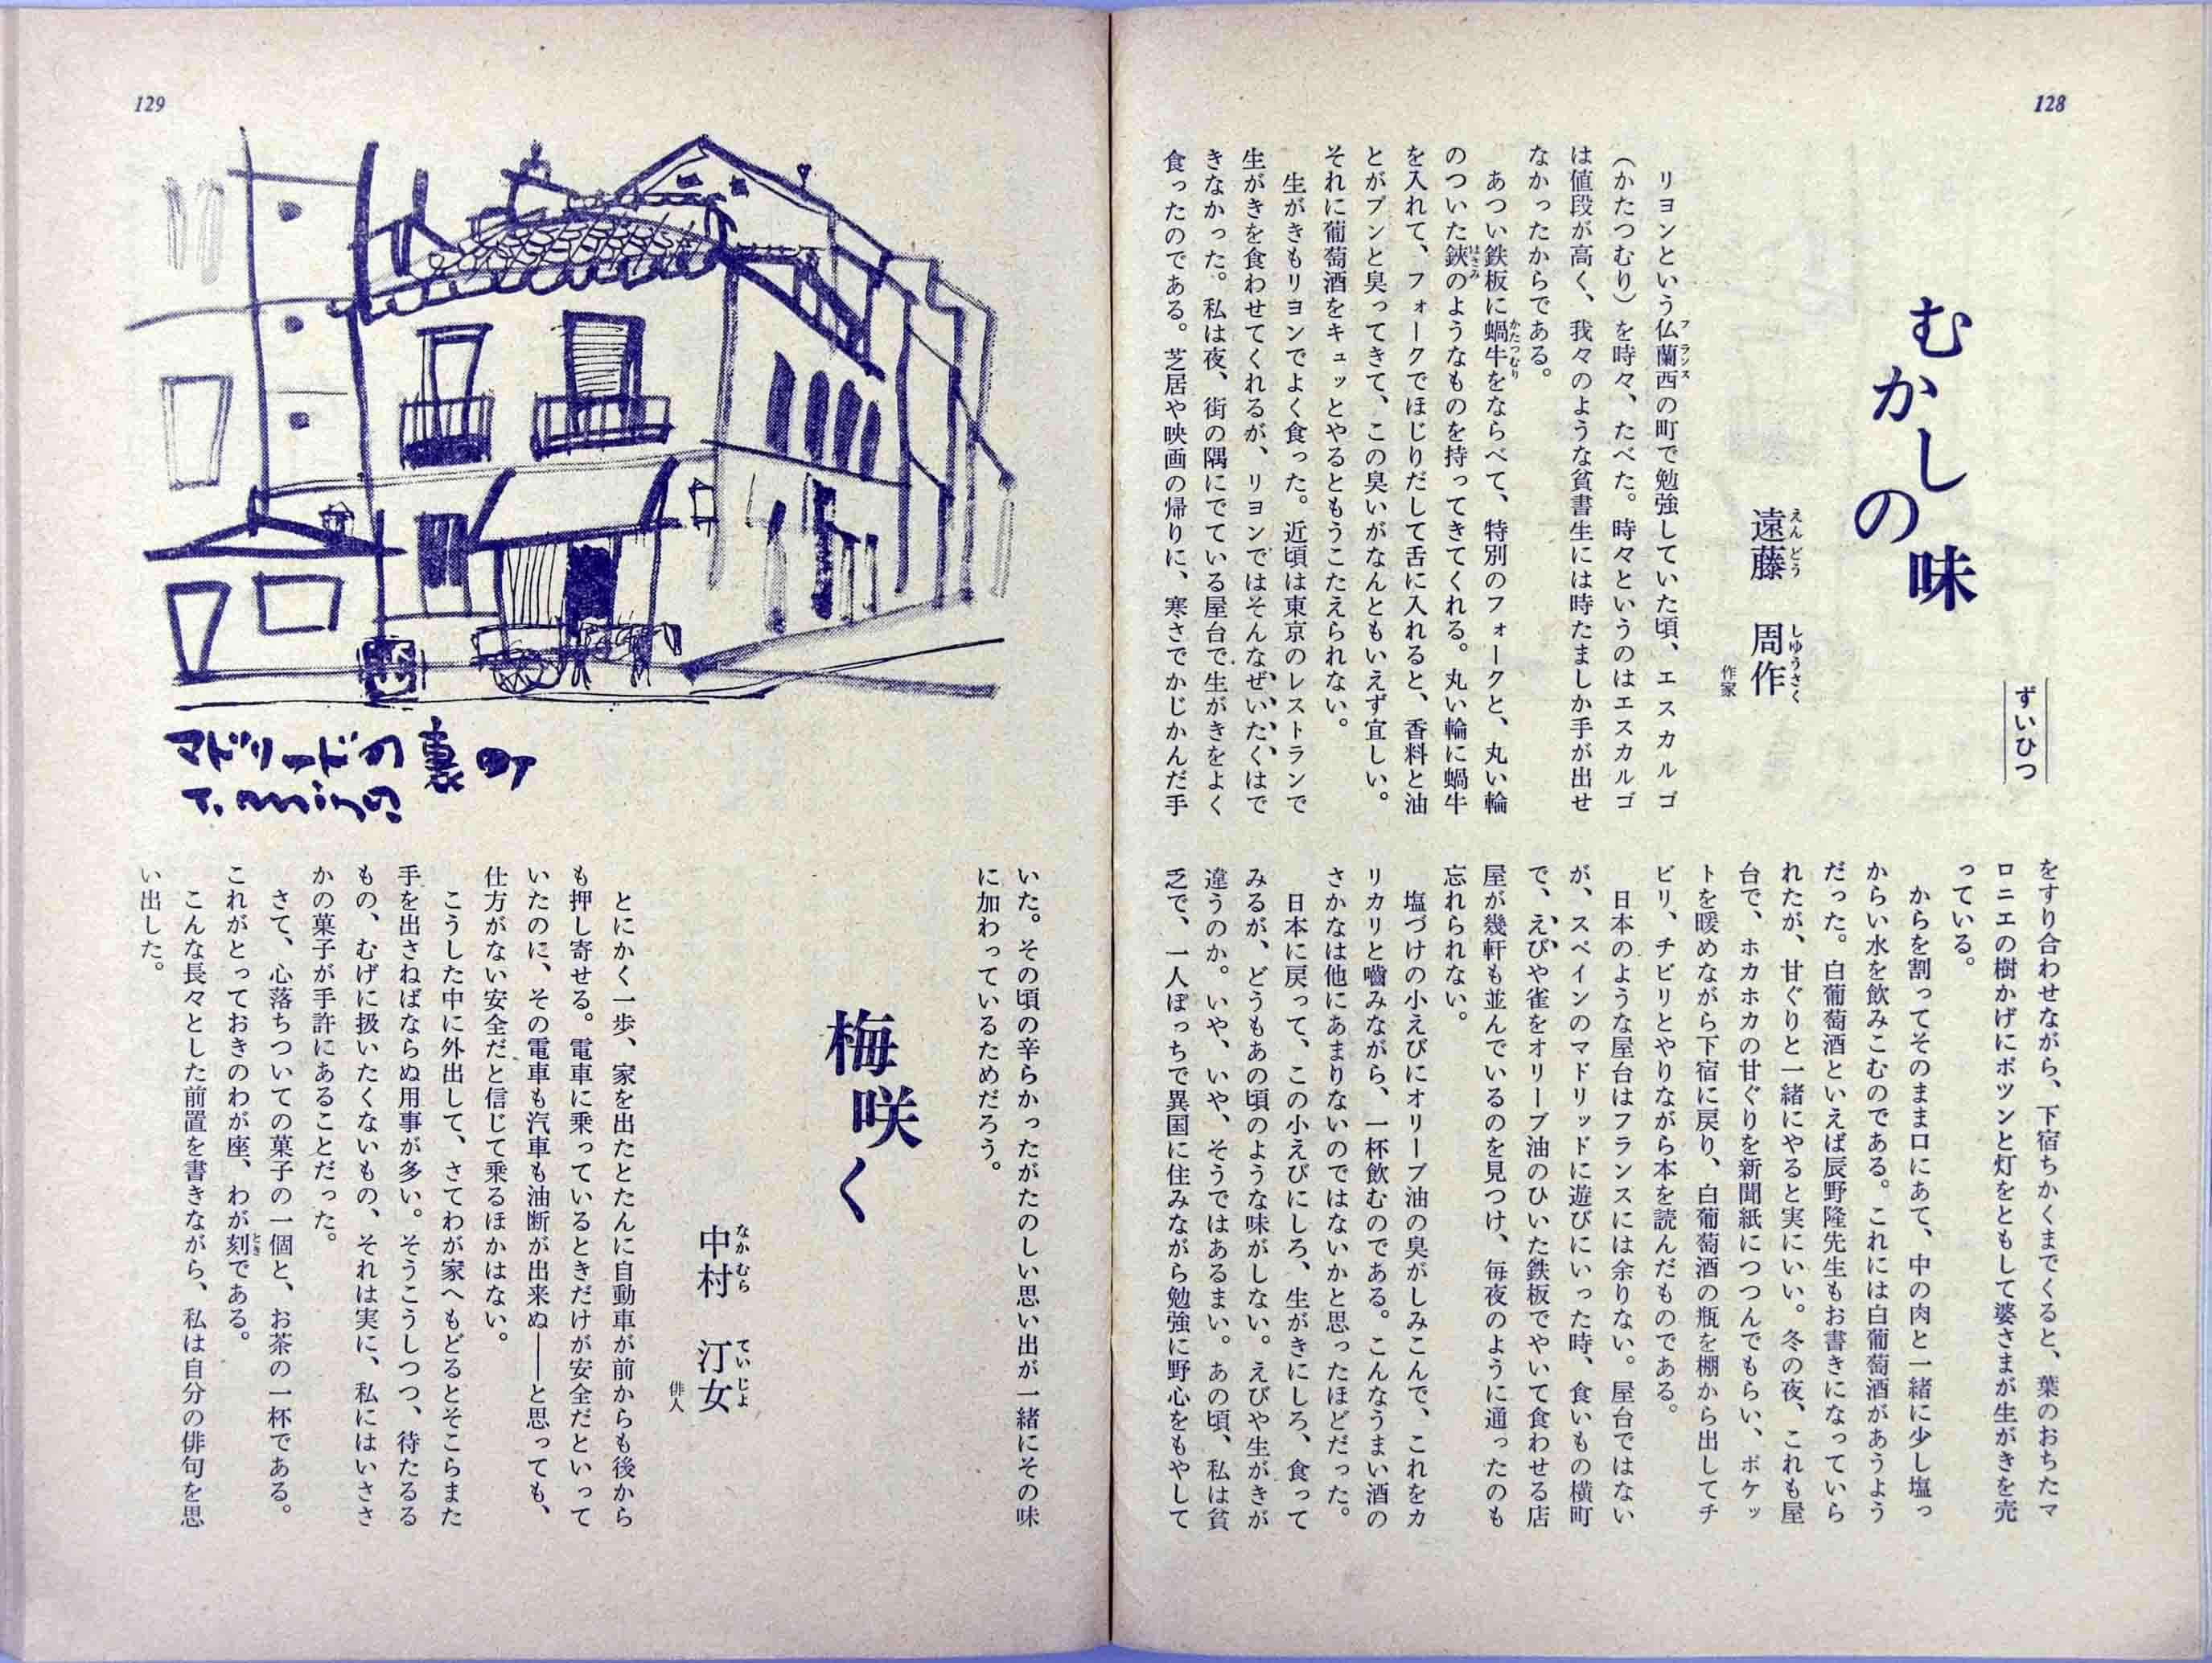 128
ずいひつ
むかしの味
遠藤 周作
えんどう しゆうさく
作家
リヨンという仏蘭西の町で勉強していた頃、エスカルゴ
フランス
(かたつむり)を時々、たべた。時々というのはエスカルゴ
は値段が高く、我々のような貧書生には時たましか手が出せ
なかったからである。
あつい鉄板に蝸牛をならべて、特別のフォークと、丸い輪
かたつむり
のついた鋏のようなものを持ってきてくれる。丸い輪に蝸牛
はさみ
を入れて、フォークでほじりだして舌に入れると、香料と油
とがプンと臭ってきて、この臭いがなんともいえず宜しい。
それに葡萄酒をキュッとやるともうこたえられない。
生がきもリヨンでよく食った。近頃は東京のレストランで
生がきを食わせてくれるが、リヨンではそんなぜいたくはで
きなかった。私は夜、街の隅にでている屋台で生がきをよく
食ったのである。芝居や映画の帰りに、寒さでかじかんだ手
をすり合わせながら、下宿ちかくまでくると、葉のおちたマ
ロニエの樹かげにポツンと灯をともして婆さまが生がきを売
っている。
からを割ってそのまま口にあて、中の肉と一緒に少し塩っ
からい水を飲みこむのである。これには白葡萄酒があうよう
だった。白葡萄酒といえば辰野隆先生もお書きになっていら
れたが、甘ぐりと一緒にやると実にいい。冬の夜、これも屋
台で、ホカホカの甘ぐりを新聞紙につつんでもらい、ポケッ
トを暖めながら下宿に戻り、白葡萄酒の瓶を棚から出してチ
ビリ、チビリとやりながら本を読んだものである。
日本のような屋台はフランスには余りない。屋台ではない
が、スペインのマドリッドに遊びにいった時、食いもの横町
で、えびや雀をオリーブ油のひいた鉄板でやいて食わせる店
屋が幾軒も並んでいるのを見つけ、毎夜のように通ったのも
忘れられない。
塩づけの小えびにオリーブ油の臭がしみこんで、これをカ
リカリと嚙みながら、一杯飲むのである。こんなうまい酒の
さかなは他にあまりないのではないかと思ったほどだった。
日本に戻って、この小えびにしろ、生がきにしろ、食って
みるが、どうもあの頃のような味がしない。えびや生がきが
違うのか。いや、いや、そうではあるまい。あの頃、私は貧
乏で、一人ぽっちで異国に住みながら勉強に野心をもやして
129
マドリードの裏町
いた。その頃の辛らかったがたのしい思い出が一緒にその味
に加わっているためだろう。
梅咲く
中村 汀女
なかむら ていじよ
俳人
とにかく一歩、家を出たとたんに自動車が前からも後から
も押し寄せる。電車に乗っているときだけが安全だといって
いたのに、その電車も汽車も油断が出来ぬ――と思っても、
仕方がない安全だと信じて乗るほかはない。
こうした中に外出して、さてわが家へもどるとそこらまた
手を出さねばならぬ用事が多い。そうこうしつつ、待たるる
もの、むげに扱いたくないもの、それは実に、私にはいささ
かの菓子が手許にあることだった。
さて、心落ちついての菓子の一個と、お茶の一杯である。
これがとっておきのわが座、わが刻である。
とき
こんな長々とした前置を書きながら、私は自分の俳句を思
い出した。